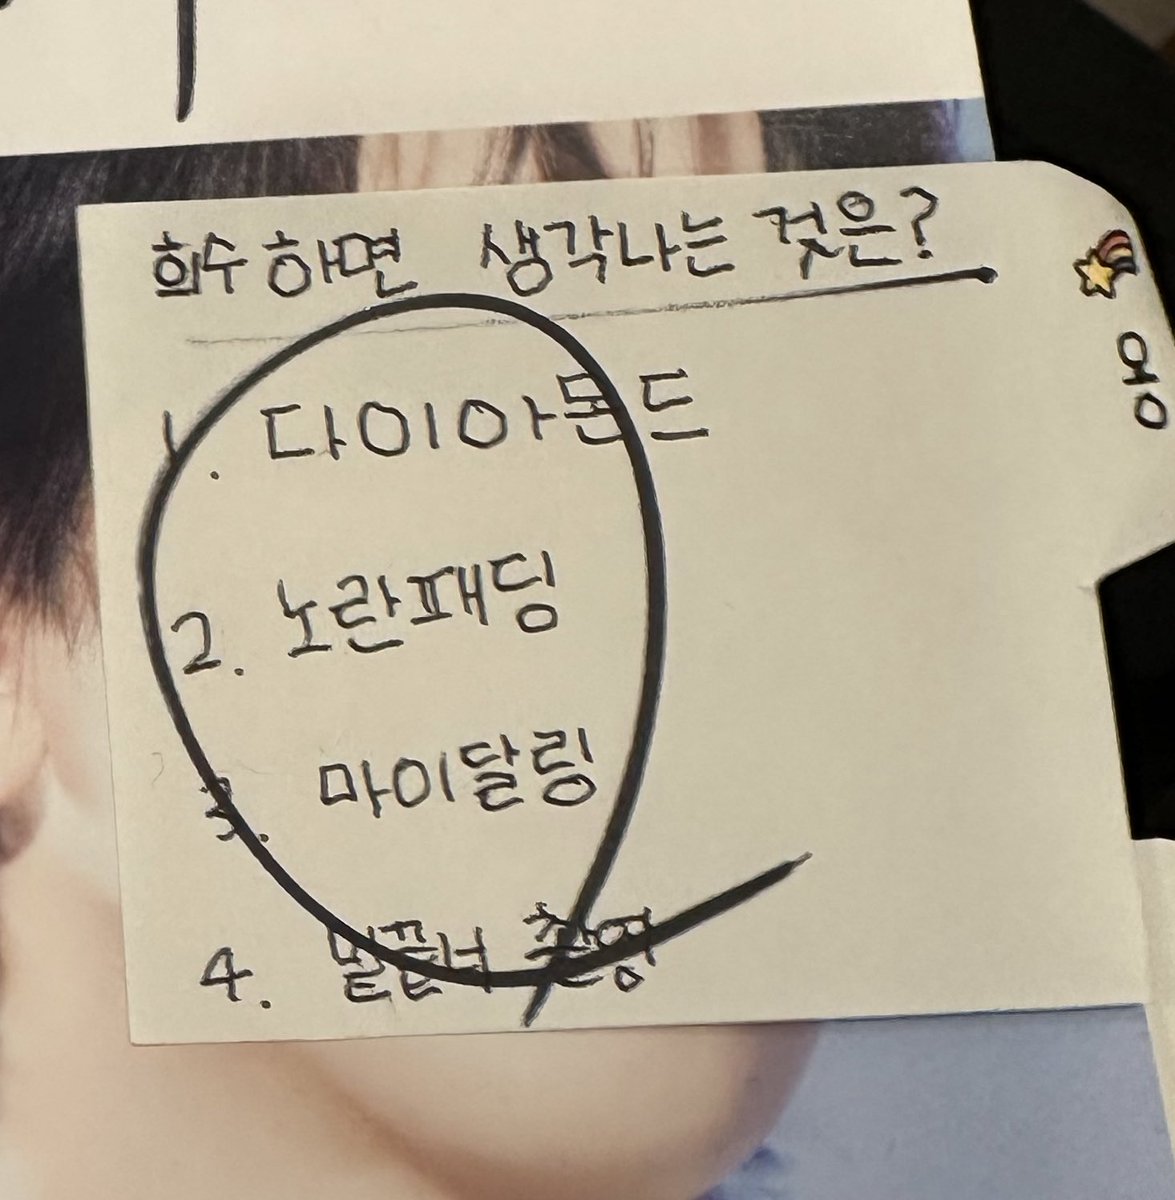 희수 하면 생각나는 것은?
1. 다이아몬드
2. 노란패딩
3. 마이달링
4. 촬영
웅